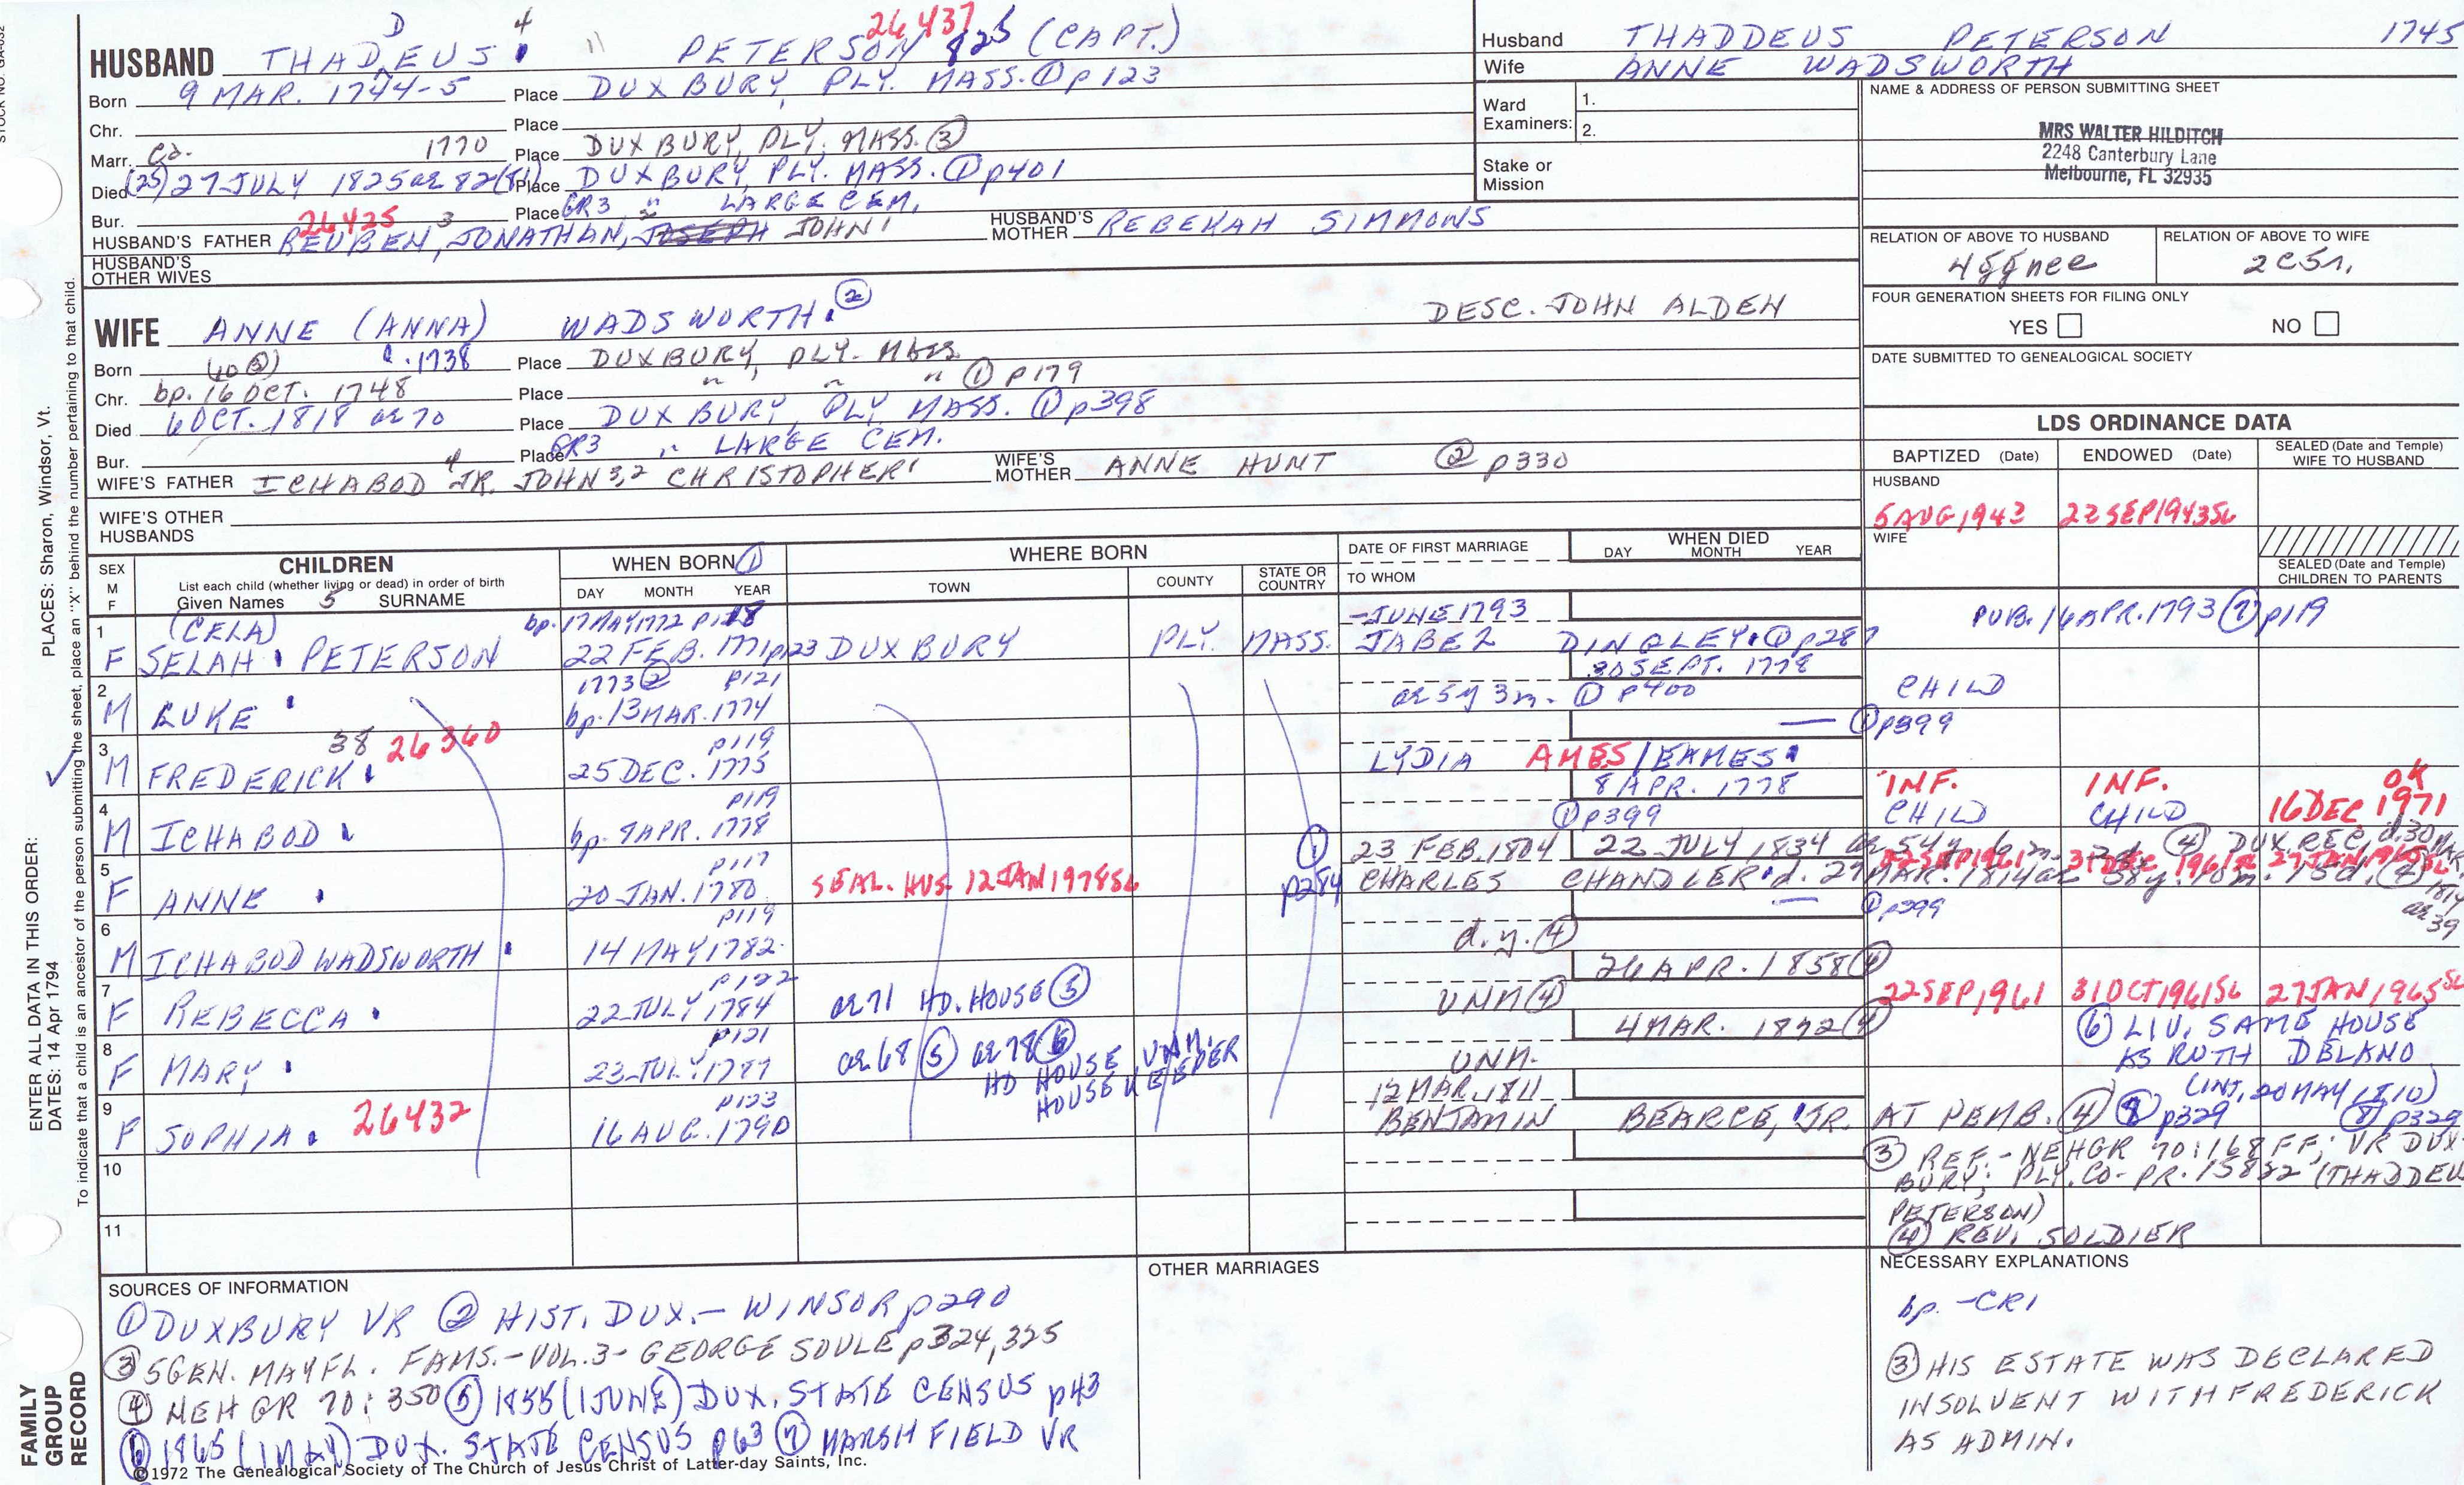 STOCK NO. GA-032
HUSBAND THADEUS D 4 PETERSON 26437 825 (CAPT.)
Born 9 MAR. 1744-5 Place DUXBURY, PLY. MASS. ① p123
Chr. Place
Marr. ca. 1770 Place DUXBURY, PLY. MASS. ③
Died (25) 27 JULY 1825 ae 82 (81) Place DUXBURY, PLY. MASS. ① p401
Bur. Place GR3 " LARGE CEM.
HUSBAND'S FATHER 26425 REUBEN, 3 JONATHAN, JOSEPH JOHN1 HUSBAND'S MOTHER REBEKAH SIMMONS
HUSBAND'S OTHER WIVES
WIFE ANNE (ANNA) WADSWORTH. ② DESC. JOHN ALDEN
Born c. 1738 Place DUXBURY, PLY. MASS
Chr. bp. 16 OCT. 1748 Place " " " ① p179
Died 6 OCT. 1818 ae 70 Place DUXBURY, PLY MASS. ① p398
Bur. Place GR3 " LARGE CEM.
WIFE'S FATHER ICHABOD 4 JR. JOHN 3,2 CHRISTOPHER1 WIFE'S MOTHER ANNE HUNT ② p330
WIFE'S OTHER HUSBANDS
Husband THADDEUS PETERSON 1745
Wife ANNE WADSWORTH
Ward Examiners: 1.
2.
Stake or Mission
NAME & ADDRESS OF PERSON SUBMITTING SHEET
MRS WALTER HILDITCH
2248 Canterbury Lane
Melbourne, FL 32935
RELATION OF ABOVE TO HUSBAND RELATION OF ABOVE TO WIFE
4ggnce 2C5r.
FOUR GENERATION SHEETS FOR FILING ONLY
YES NO
DATE SUBMITTED TO GENEALOGICAL SOCIETY
LDS ORDINANCE DATA
BAPTIZED (Date) ENDOWED (Date) SEALED (Date and Temple) WIFE TO HUSBAND
HUSBAND
5 AUG 1943 22 SEP 1943 SL
WIFE
SEALED (Date and Temple) CHILDREN TO PARENTS
SEX M F CHILDREN WHEN BORN ① WHERE BORN DATE OF FIRST MARRIAGE WHEN DIED
List each child (whether living or dead) in order of birth
Given Names 5 SURNAME DAY MONTH YEAR TOWN COUNTY STATE OR COUNTRY TO WHOM DAY MONTH YEAR
1 (CELA) bp. 17 MAY 1772 - JUNE 1793 PUB. 16 APR. 1793 ⑦ p119
F SELAH PETERSON 22 FEB. 1771 p123 DUXBURY PLY. MASS. JABEZ DINGLEY. ① p287
2 1773 ② p121 30 SEPT. 1778
M LUKE bp. 13 MAR. 1774 ae 5y 3m. ① p400 CHILD
3 38 26360 p119 — ① p399
M FREDERICK 25 DEC. 1775 LYDIA AMES/EAMES
4 p119 8 APR. 1778 INF. INF. OK
M ICHABOD bp. 9 APR. 1778 ① p399 CHILD CHILD 16 DEC 1971
5 p117 ① 23 FEB. 1804 22 JULY 1834 ④ DUX. REC.
F ANNE 20 JAN. 1780 SEAL. HUS. 12 JAN 1978 SL p284 CHARLES CHANDLER
6 p119 — ① p399
M ICHABOD WADSWORTH 14 MAY 1782 d.y. ④
7 p122 26 APR. 1858 ④
F REBECCA 22 JULY 1784 ae 71 HD. HOUSE ⑤ UNM ④ 22 SEP 1961 31 OCT 1961 SL 27 JAN 1965 SL
8 p121 4 MAR. 1872 ④ ⑥ LIV. SAME HOUSE
F MARY 23 JULY 1787 ae 68 ⑤ ae 78 ⑥ UNM. UNM. AS RUTH DELANO
HD HOUSE
HOUSEKEEPER
9 26432 p123 12 MAR. 1811 (INT. 20 MAY 1810)
F SOPHIA 16 AUG. 1790 BENJAMIN BEARCE, JR. AT PEMB. ④ ⑧ p329 ⑧ p329
10 ③ REF.- NEHGR 70:168 FF; VR DUX-
BURY; PLY. CO- PR. 15832 (THADDEUS
PETERSON)
11 ④ REV. SOLDIER
SOURCES OF INFORMATION
① DUXBURY VR ② HIST. DUX. - WINSOR p290
③ 5GEN. MAYFL. FAMS. - VOL. 3 - GEORGE SOULE p324,325
④ NEHGR 70:350 ⑤ 1855 (1 JUNE) DUX. STATE CENSUS p43
⑥ 1865 (1 MAY) DUX. STATE CENSUS p63 ⑦ MARSHFIELD VR
©1972 The Genealogical Society of The Church of Jesus Christ of Latter-day Saints, Inc.
OTHER MARRIAGES
NECESSARY EXPLANATIONS
bp. - CR1
③ HIS ESTATE WAS DECLARED
INSOLVENT WITH FREDERICK
AS ADMIN.
ENTER ALL DATA IN THIS ORDER: PLACES: Sharon, Windsor, Vt.
DATES: 14 Apr 1794
To indicate that a child is an ancestor of the person submitting the sheet, place an "X" behind the number pertaining to that child.
FAMILY
GROUP
RECORD